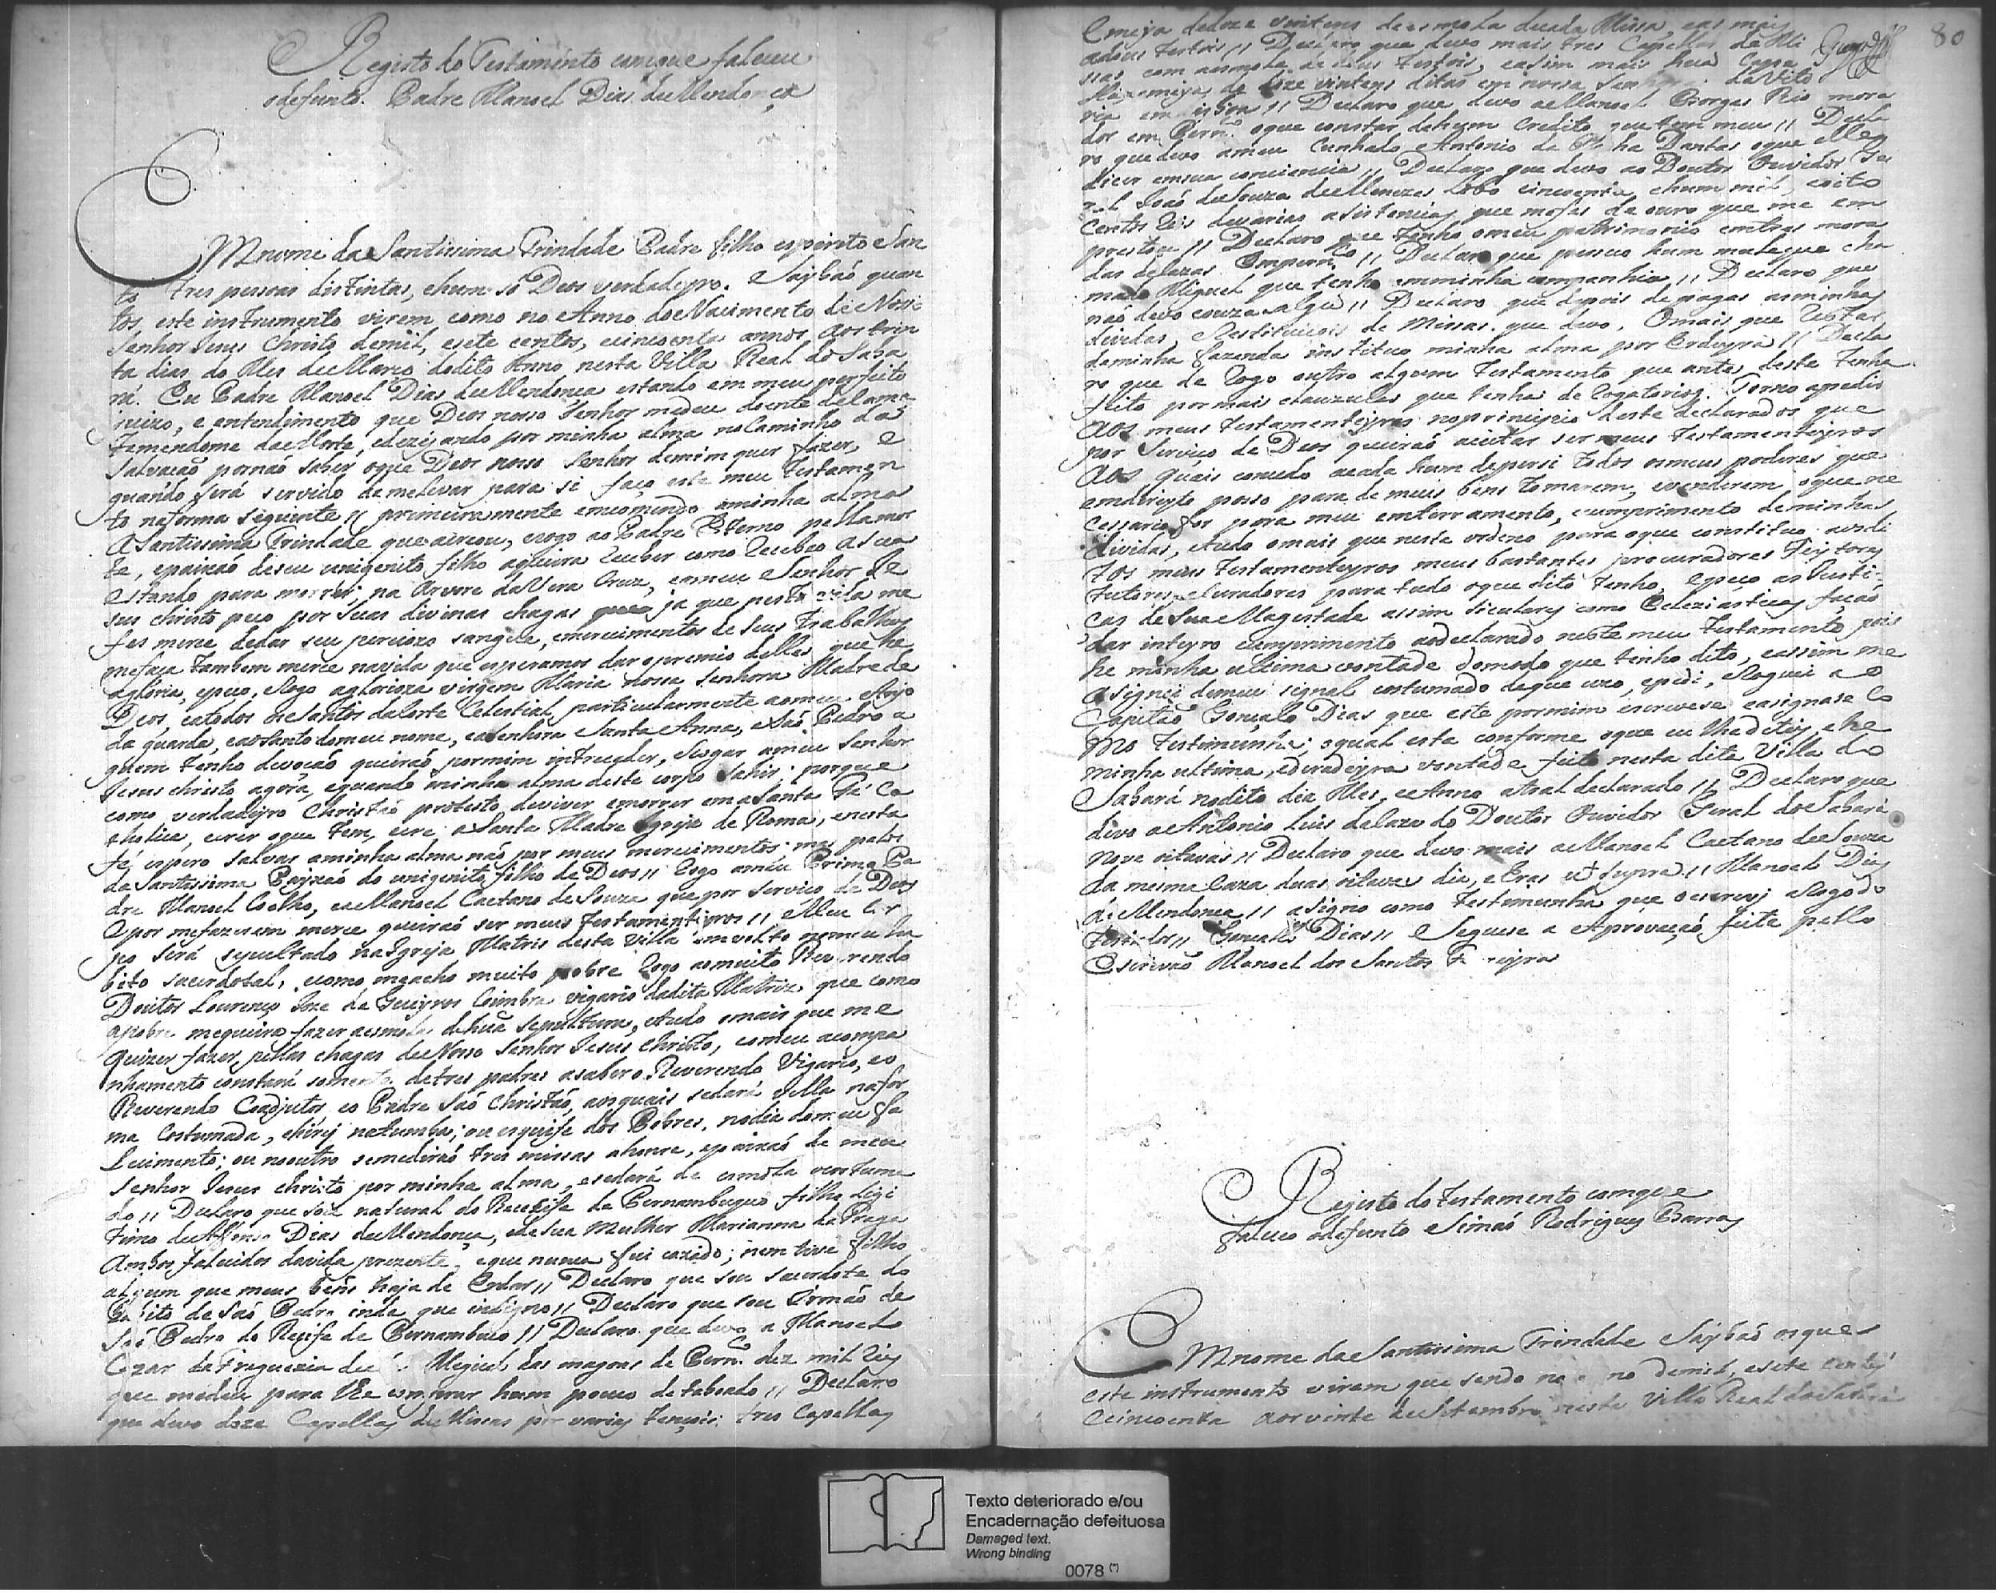 Registo do Testamento comque faleceu
odefunto. Padre Manoel Dias de Mendonça
Emnome da Santissima Trindade Padre filho espirito San
to tres pessoas distintas, ehum só Deos verdadeyro. Saybaõ quan
tos, este instrumento virem como no Anno do Nacimento de Nosso
Senhor Jesus Christo demil, esete centos, ecincoenta annos aos trin
ta dias do Mes de Março dodito Anno nesta Villa Real do Saba
rá. Eu Padre Manoel Dias de Mendonca estando em meu perfeito
juizo, e entendimento que Deos nosso Senhor medeu doente de cama
temendome da Morte, edezejando por minha alma no Caminho da
Salvacaõ pornaõ saber oque Deos nosso Senhor demim quer fazer, e
quando será servido demelevar para si faço este meu testamen
to naforma seguinte // primeiramente emcomendo aminha alma
a Santissima Trindade que acreou, erogo ao Padre Eterno pella mor
te, epaixaõ deseu unigenito filho aqueira receber como recebeo asua
estando para morrer, na Arvore da Vera Cruz, eameu Senhor Je
sus christo peço por suas divinas chagas que ja que nesta vida me
fes merce dedar seu precioso sangue, emerecimentos de seus trabalhos
mefaca tambem merce navida que esperamos dar opremio delles que he
agloria, epeço, eRogo aglorioza virgem Maria nossa senhora Madre de
Deos, eatodos os Santos da Corte Celestial particularmente aomeu Anjo
da guarda, eaoSanto domeu nome, eaSenhora Santa Anna, eSaõ Pedro a
quem tenho devocaõ queiraõ pormim interceder, eRogar ameu Senhor
Jesus christo agora, equando minha alma deste corpo sahir; porque
como verdadeyro Christaõ protesto deviver emorrer em a Santa Fé Ca
tholica, ecrer oque tem, ecre a Santa Madre Igreja de Roma, enesta
fe, espero salvar aminha alma naõ por meus merecimentos mas pellos
da Santissima Paixaõ do unigenito filho de Deos // Rogo ameu Primo Pa
dre Manoel Coelho, eaManoel Caetano de Souza que por serviço de Deos
epor mefazerem merce queiraõ ser meus testamenteyros // Meu Cor
po será sepultado na Igreja Matris desta Villa emvolto nomeu ha
bito sacerdotal, ecomo meacho muito pobre Rogo aomuito Reverendo
Doutor Lourenço Joze de Queyros Coimbra vigario dadita Matriz que como
apobre mequeira fazer aesmola dehuã sepultura, etudo omais que me
quizer fazer, pellas chagas de Nosso Senhor Jesus Christo, eomeu acompa
nhamento constará somente detres padres asaber o Reverendo Vigario, eo
Reverendo Coadjutor eo Padre Saõ Christaõ, aosquais sedará vella nafor
ma Costumada, ehirej natumba; ou esquife dos Pobres. nodia domeu fa
lecimento; ou nooutro semediraõ tres missas ahonra, epaixaõ de meu
Senhor Jesus christo por minha alma, esedará de esmola ocostuma
do // Declaro que sou natural do Reccife de Pernambuquo filho legi
timo de Affonso Dias de Mendonça, edeSua Mulher Marianna de
Ambos falecidos davida prezente, eque nunca fui cazado; nem tive filho
algum que meus beñs haja de Erdar // Declaro que sou sacerdote do
Habito de Saõ Pedro inda que indigno // Declaro que sou Irmaõ de
Saõ Pedro do Recife de Pernambuco // Declaro que devo a Manoel
Cezar da Freguezia de Miguel das alagoas de Pern.co dez mil reis
que medeu para lhe comprar hum pouco de taboado // Declaro
que devo doze Capellas deMissas por varias tencois tres Capellas
80
Emeya dedoze vintens deesmola decada Missa, eas mais
adous tostois // Declaro que devo mais tres Capellas de Mi
ssas com aesmola de dous tostois, easim mais hua Cape
lla emeya de doze vintens ditas em nossa Senhora da Vito
ria // Declaro que devo aManoel Borges Rio mora
dor em Pern.co oque constar dehum Credito que tem meu // Decla
ro que devo ameu Cunhado Antonio de Dantas oque elle
dicer emsua conciencia // Declaro que devo ao Doutor Ouvidor Ge
ral Joaõ deSouza deMenezes Lobo cincoenta, ehum mil, eoito
centos Reis devarias asistencias que mefes de ouro que me em
prestou // Declaro que tenho omeu patrimonio emtres mora
das decazas Empern.co // Declaro que possuo hum muleque cha
mado Miguel que tenho emminha companhia // Declaro que
naõ devo couza algua // Declaro que depois depagas asminhas
dividas, eRestituicois de Missas que devo, Omais que Restar
deminha fazenda instituo minha alma por Erdeyra // Decla
ro que de Rogo outro algum Testamento que antes deste tenha
feito pormais clauzulas que tenha de Rogatorias. Torno apedir
aos meus testamenteyros noprincipio deste declarados que
por Serviço de Deos queiraõ aceitar ser meus Testamenteyros
aos quais concedo acada hum depersi todos osmeus poderes que
emdireyto posso para de meus bens tomarem, evenderem oque ne
cessario for para meu emterramento, ecumprimento deminhas
dividas, etudo omais que neste ordeno para oque constituo aosdi
tos meus Testamenteyros meus bastantes procuradores Feytores
Tutores, eCuradores para tudo oque dito tenho, epeço as Justi
cas de Sua Magestade assim siculares como Ecleziasticas façaõ
dar inteyro cumprimento aodeclarado neste meu Testamento pois
he minha ultima vontade domodo que tenho dito, eassim me
asignei demeu signal costumado deque uzo, epedi, eRoguei ao
Capitaõ Gonçalo Dias que este pormim escrevese easignase Co
mo testemunha; oqual esta conforme oque eu lhe ditej ehe
minha ultima, ederadeyra vontade feito nesta dita Villa do
Sabará nodito dia Mes, eAnno atras declarado // Declaro que
devo aAntonio Luis dacaza do Doutor Ouvidor Geral do Sabará
nove oitavas // Declaro que devo mais aManoel Caetano deSouza
da mesma Caza duas oitavas dia, eEras ut supra // Manoel Dias
de Mendonca // aSigno como Testemunha que oescrevj aRogo do
Testador // Gonçalo Dias // eSeguese a Aprovaçaõ feita pello
Escrivaõ Manoel dos Santos
Rejisto do Testamento comque
faleceo odefunto Simaõ Rodrigues Barros
Emnome da Santissima Trindade Saybaõ osque
este instrumento virem que sendo no demil, esete centos
ecincoenta aosvinte deSetembro nesta Villa Real do Sabará
Texto deteriorado e/ou
Encadernação defeituosa
Damaged text.
Wrong binding
0078 (*)